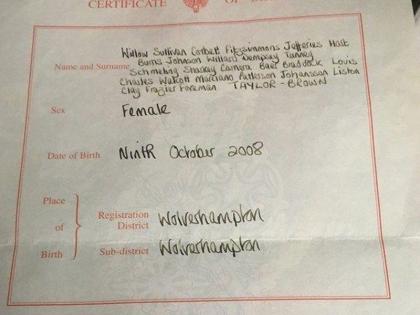 CERTIFICATE OF
Willow Sullivan Corbett Fitzsimmons Jefferies Hart
Burns Johnson Willard Dempsey Tunney
Name and Surname Schmeling Sharkey Carnera Baer Braddock Louis
Charles Walcott Marciano Patterson Johansson Liston
Clay Frazier Foreman TAYLOR-BROWN
Sex Female
Date of Birth Ninth October 2008
Place of Birth
Registration District Wolverhampton
Sub-district Wolverhampton